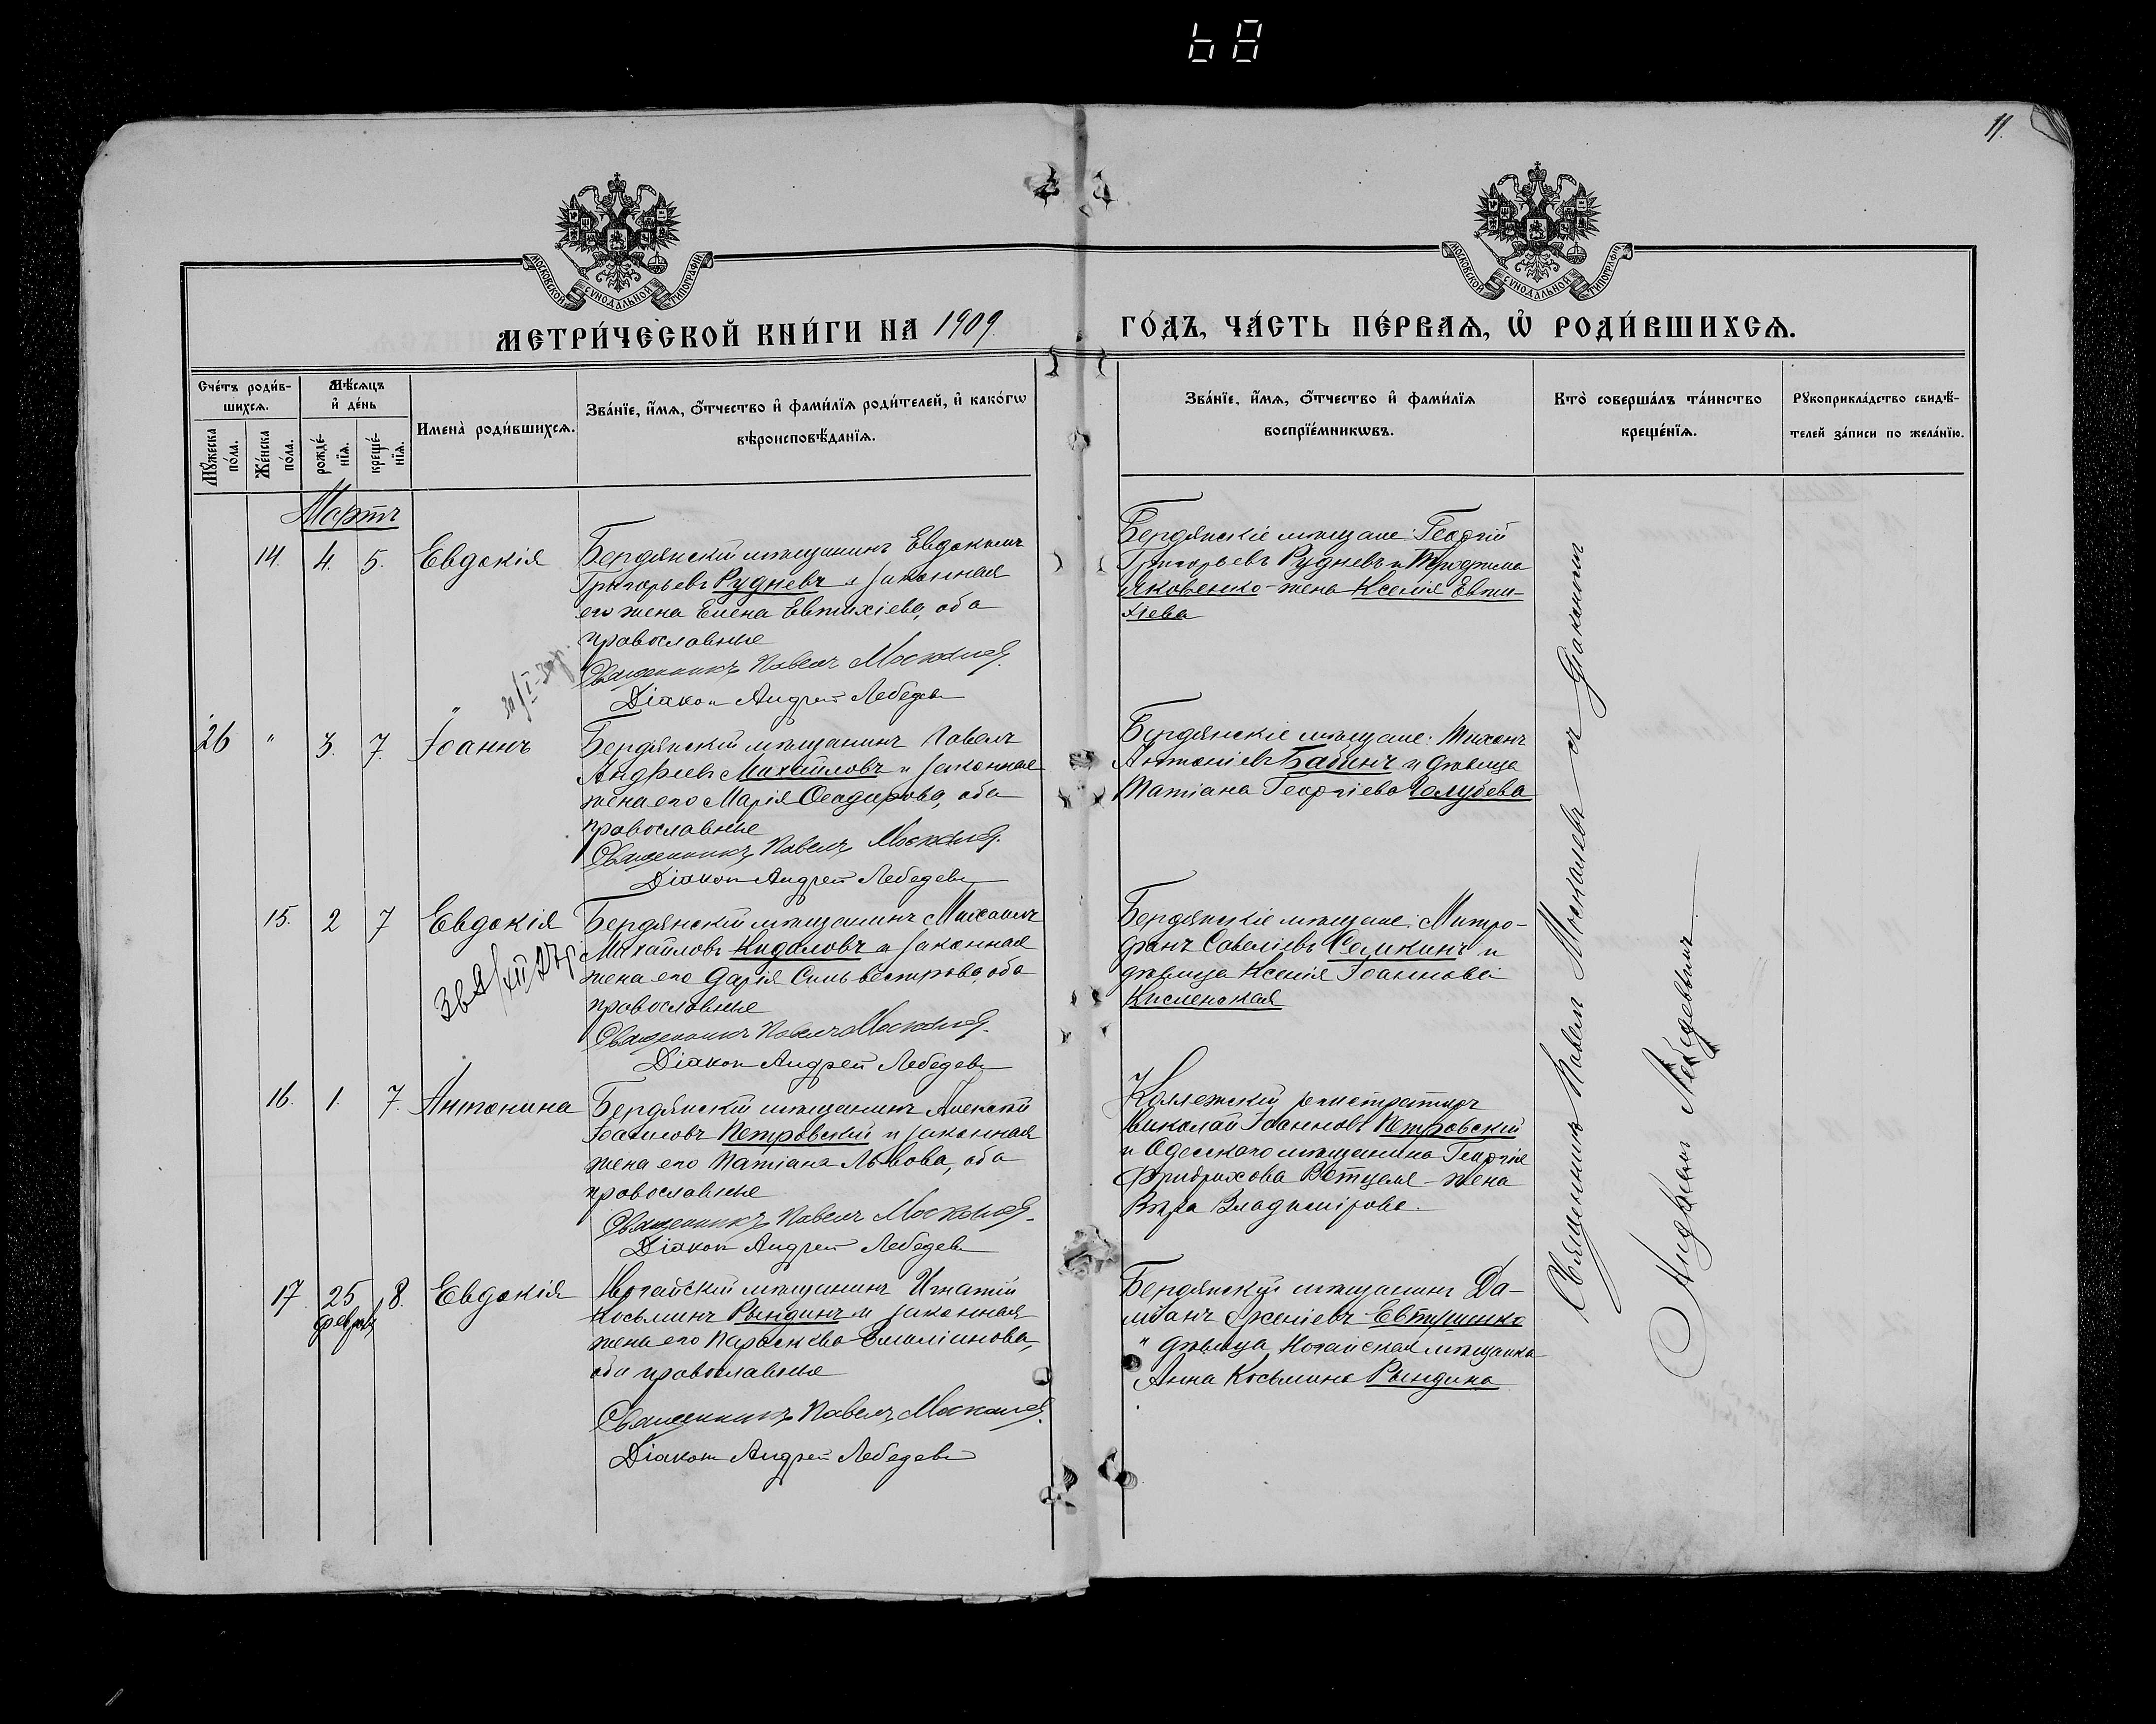 68
11
МОСКОВСКОЙ СѴНОДАЛЬНОЙ ТИПОГРАФІИ
МОСКОВСКОЙ СѴНОДАЛЬНОЙ ТИПОГРАФІИ
МЕТРИ́ЧЕСКОЙ КНИ́ГИ НА 1909.
ГО́ДЪ, ЧА́СТЬ ПЕ́РВАѦ, Ѡ҆ РОДИ́ВШИХСѦ.
Сче́тъ роди́в-
шихсѧ.
Мѣ́сѧцъ
и҆ де́нь
Мꙋ́жеска
по́ла.
Же́нска
по́ла.
рожде́-
нїѧ.
креще́-
нїѧ.
Имена̀ роди́вшихсѧ.
Зва́нїе, и҆́мѧ, ѻ҆́тчество и҆ фами́лїѧ роди́телей, и҆ како́гѡ
вѣроисповѣ́данїѧ.
Зва́нїе, и҆́мѧ, ѻ҆́тчество и҆ фами́лїѧ
воспрїе́мникѡвъ.
Кто̀ соверша́лъ та́инство
креще́нїѧ.
Рꙋкоприкла́дство свидѣ́-
телей за́писи по жела́нїю.
Мартъ
14. 4. 5. Евдокія
Бердянскій мѣщанинъ Евдокимъ
Григорьевъ Рудневъ и законная
его жена Елена Евтихіева, оба
православные
Священникъ Павелъ Москалевъ
Діаконъ Андрей Лебедевъ
Бердянскіе мѣщане: Георгій
Григорьевъ Рудневъ и Трофима
Яковенко - жена Ксенія Евти-
хіева
26 " 3. 7. Іоаннъ
Бердянскій мѣщанинъ Павелъ
Андреевъ Михайловъ и законная
жена его Марія Ѳеодорова, оба
православные
Священникъ Павелъ Москалевъ
Діаконъ Андрей Лебедевъ
Бердянскіе мѣщане: Тихонъ
Антоніевъ Бабинъ и дѣвица
Татіана Георгіева Голубева
15. 2 7 Евдокія
Бердянскій мѣщанинъ Михаилъ
Михайловъ Кидаловъ и законная
жена его Дарія Сильвестрова, оба
православные
Священникъ Павелъ Москалевъ
Діаконъ Андрей Лебедевъ
Бердянскіе мѣщане: Митро-
фанъ Савеліевъ Семкинъ и
дѣвица Ксенія Іоаннова
Кисленская
16. 1. 7. Антонина
Бердянскій мѣщанинъ Алексѣй
Петровскій и законная
жена его Татіана Львова, оба
православные
Священникъ Павелъ Москалевъ
Діаконъ Андрей Лебедевъ
Коллежскій регистраторъ
Николай Іоанновъ Петровскій
и Одесскаго мѣщанина Георгія
Фридрихова Ветцеля - жена
Вѣра Владимірова.
17 25 февраля 8. Евдокія
Ногайскій мѣщанинъ Игнатій
Косьминъ Рындинъ и законная
жена его Параскева Емиліанова,
оба православные
Священникъ Павелъ Москалевъ
Діаконъ Андрей Лебедевъ
Бердянскій мѣщанинъ Да-
міанъ Евтушенко
и дѣвица Ногайская мѣщанка
Анна Косьмина Рындина
Священникъ Павелъ Москалевъ съ діакономъ
Андреемъ Лебедевымъ